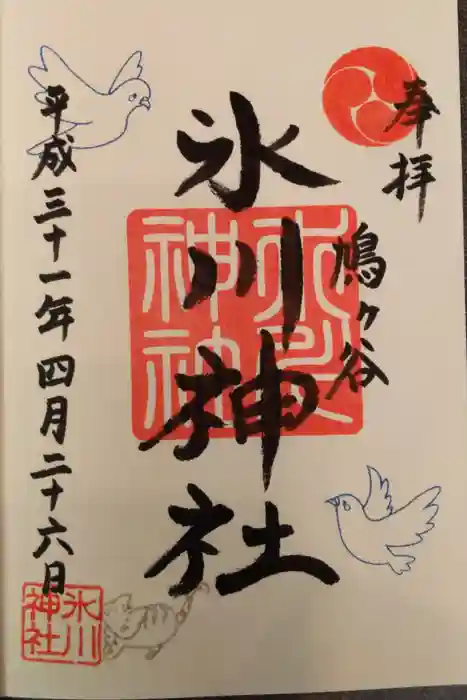 奉拝
鳩ヶ谷
氷川神社
氷川神社
平成三十一年四月二十六日
氷川
神社